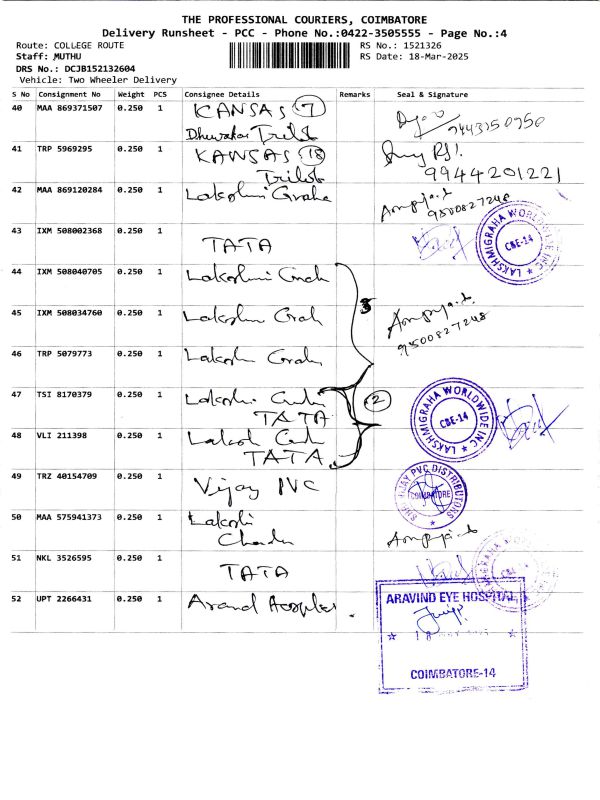 THE PROFESSIONAL COURIERS, COIMBATORE
Delivery Runsheet - PCC - Phone No.:0422-3505555 - Page No.:4
Route: COLLEGE ROUTE
RS No.: 1521326
Staff: MUTHU
RS Date: 18-Mar-2025
DRS No.: DCJB152132604
Vehicle: Two Wheeler Delivery
S No Consignment No Weight PCS Consignee Details Remarks Seal & Signature
40 MAA 869371507 0.250 1 KANSAS 7
9443150950
41 TRP 5969295 0.250 1 KANSAS 18
9944201221
42 MAA 869120284 0.250 1 Lakshmi Graha
9500827248
43 IXM 508002368 0.250 1 TATA
LAKSHMIGRAHA WORLDWIDE INC
CBE-14
44 IXM 508040705 0.250 1 Lakshmi
3
45 IXM 508034760 0.250 1 Lakshmi
9500827248
46 TRP 5079773 0.250 1 Lakshmi
47 TSI 8170379 0.250 1 Lakshmi
TATA
2
LAKSHMIGRAHA WORLDWIDE INC
CBE-14
48 VLI 211398 0.250 1
TATA
49 TRZ 40154709 0.250 1 Vijay PVC
VIJAY PVC DISTRIBUTORS
COIMBATORE
50 MAA 575941373 0.250 1
51 NKL 3526595 0.250 1 TATA
52 UPT 2266431 0.250 1
ARAVIND EYE HOSPITAL
COIMBATORE-14